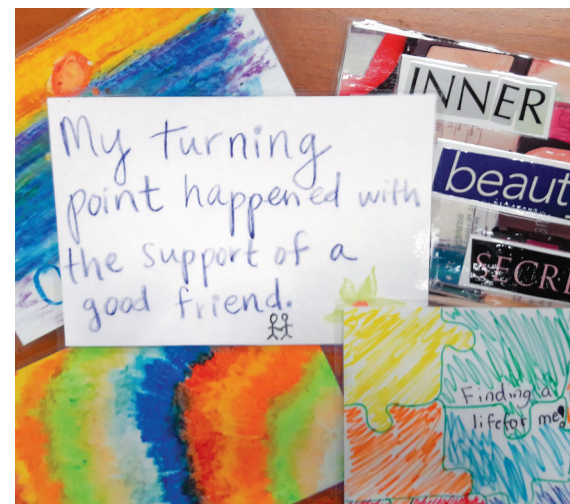 My turning
point happened with
the support of a
good friend.
INNER
beaut
SECR
Finding a
life for me!